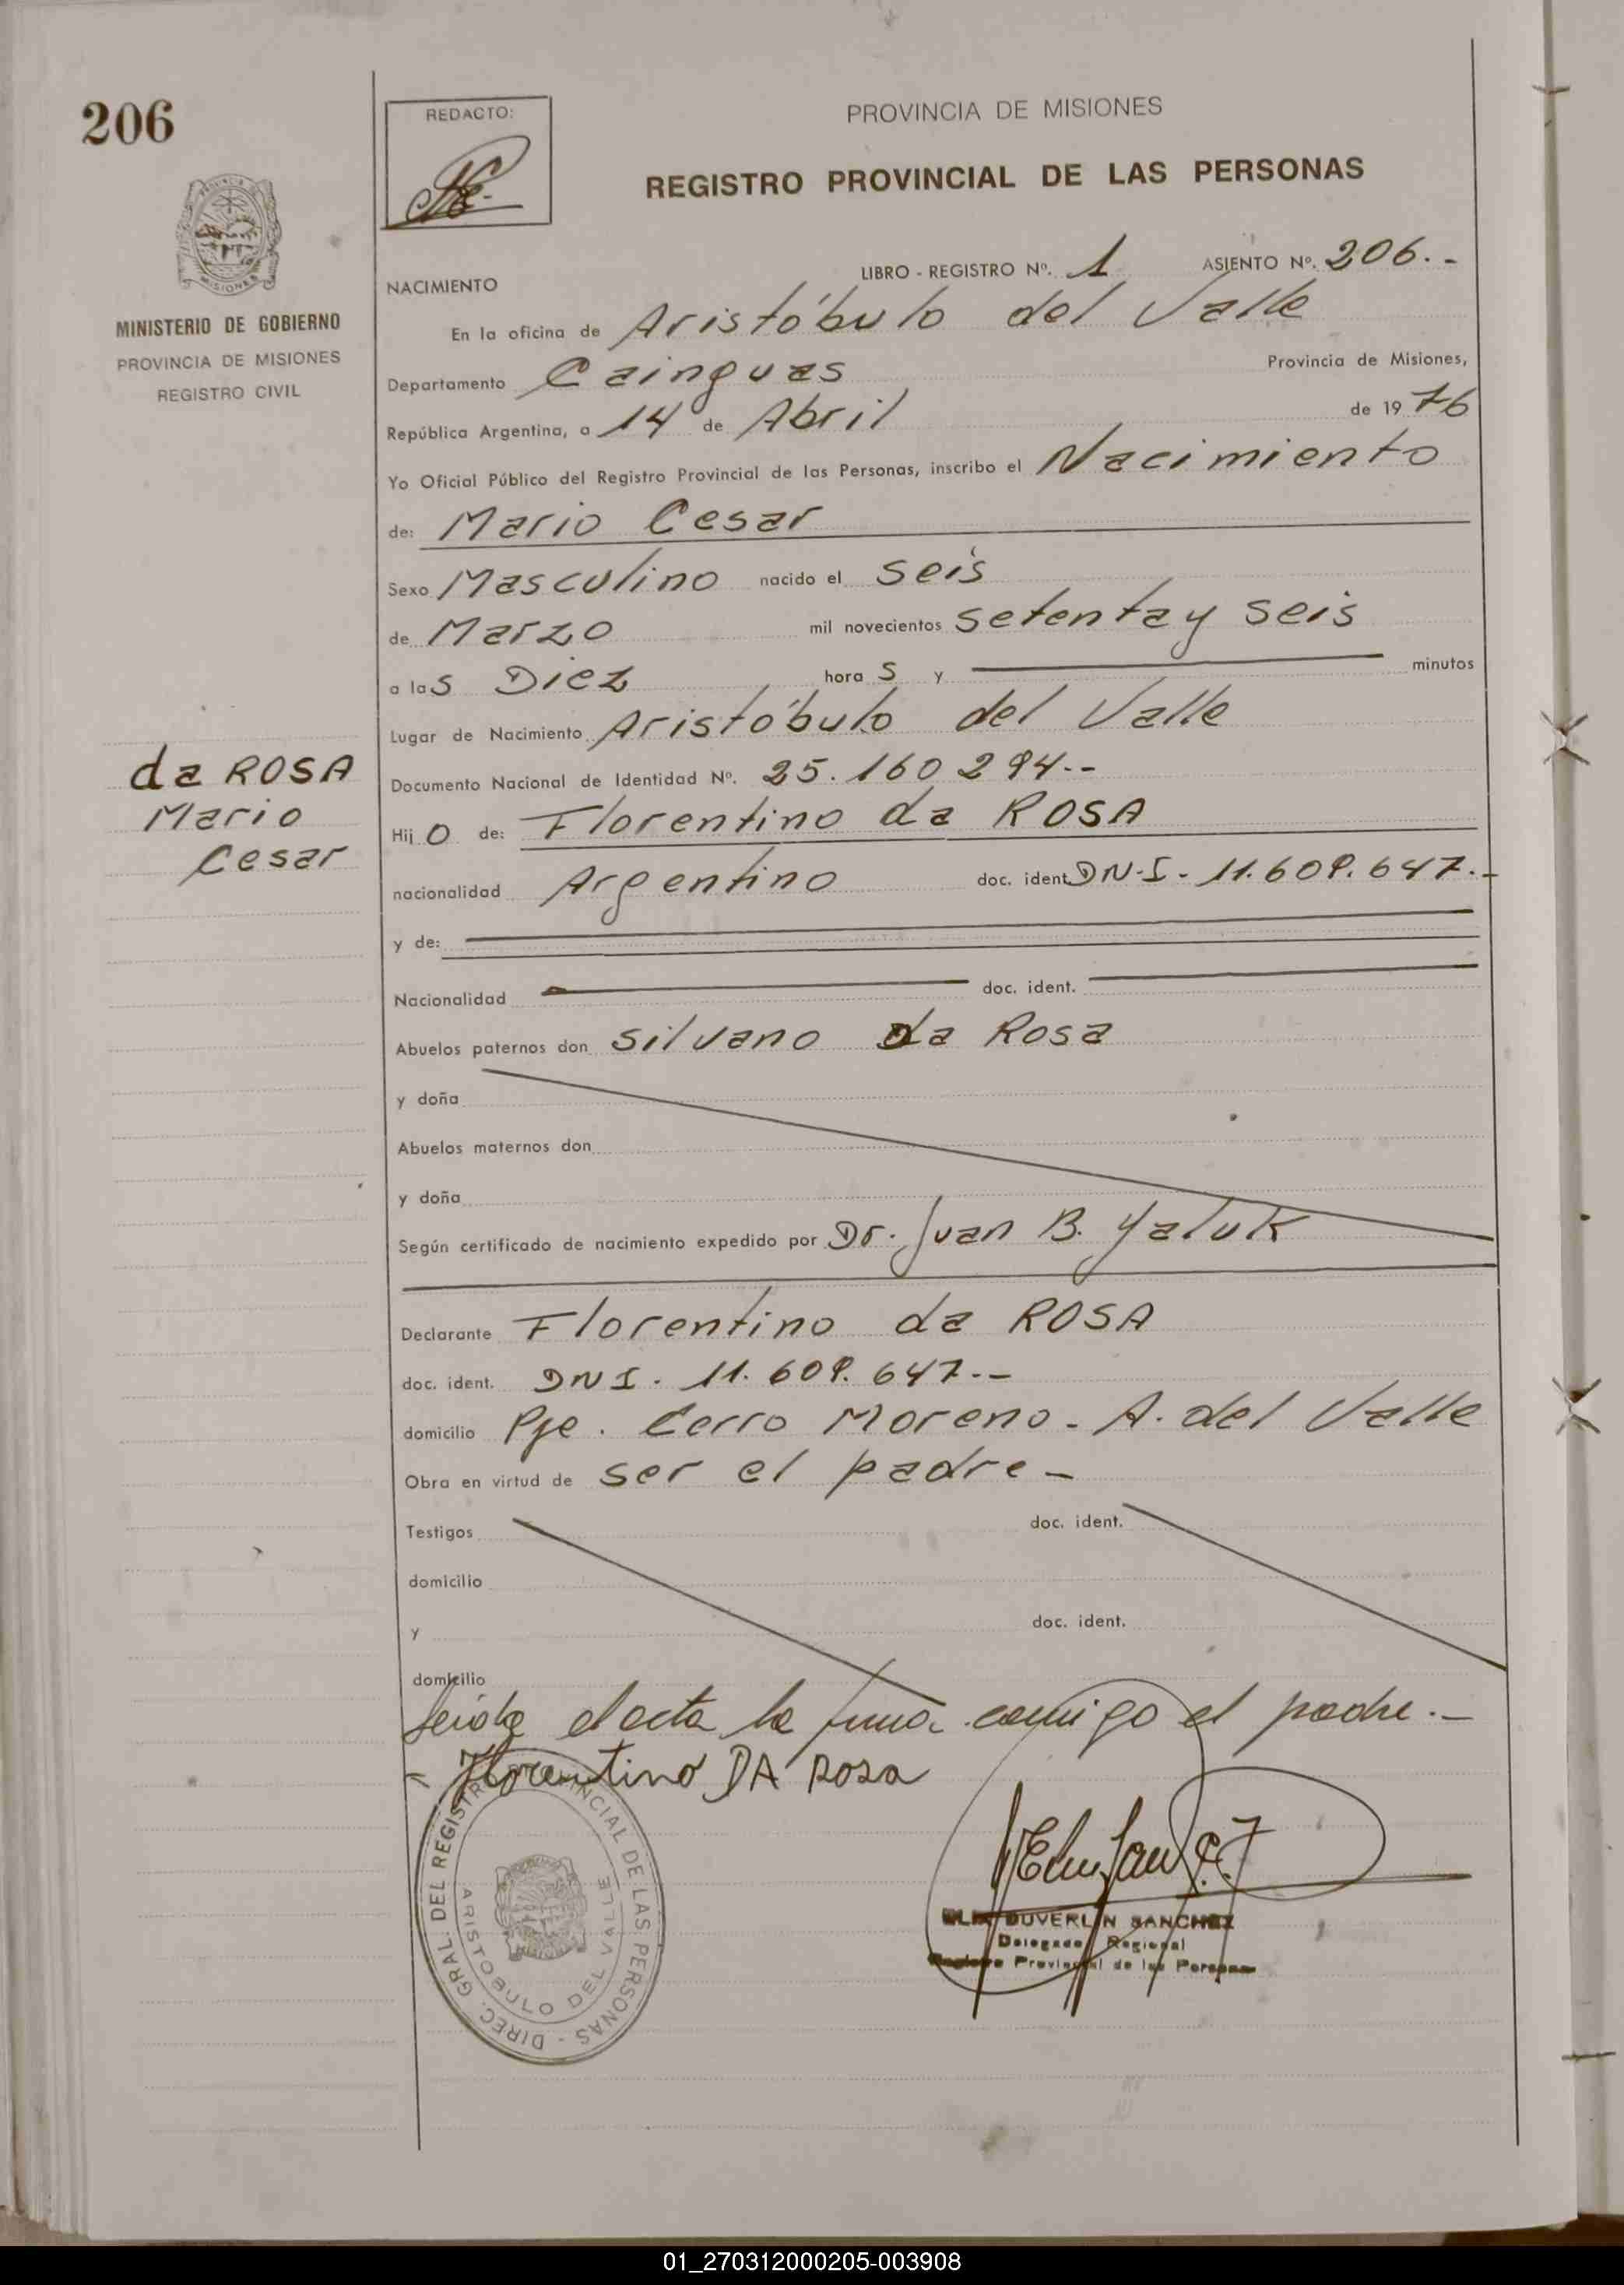 206
REDACTO:
PROVINCIA DE MISIONES
REGISTRO PROVINCIAL DE LAS PERSONAS
MISIONES
MINISTERIO DE GOBIERNO
PROVINCIA DE MISIONES
REGISTRO CIVIL
LIBRO - REGISTRO Nº. 1 ASIENTO Nº. 206.-
NACIMIENTO
En la oficina de Aristóbulo del Valle
Departamento Cainguas Provincia de Misiones,
República Argentina, a 14 de Abril de 1976
Yo Oficial Público del Registro Provincial de las Personas, inscribo el Nacimiento
de: Mario Cesar
Sexo Masculino nacido el seis
de Marzo mil novecientos setenta y seis
a las Diez horas y minutos
Lugar de Nacimiento Aristóbulo del Valle
da ROSA
Mario
Cesar
Documento Nacional de Identidad Nº. 25.160294.-
Hijo de: Florentino da ROSA
nacionalidad Argentino doc. ident DN-I- 11.609.647.-
y de:
Nacionalidad doc. ident.
Abuelos paternos don silvano da Rosa
y doña
Abuelos maternos don
y doña
Según certificado de nacimiento expedido por Dr. Juan B. Yaluk
Declarante Florentino da ROSA
doc. ident. DNI. 11.609.647.-
domicilio Pje. Cerro Moreno - A. del Valle
Obra en virtud de ser el padre-
Testigos doc. ident.
domicilio
y doc. ident.
domicilio
leida el acta la firma comigo el padre.-
Florentino DA Rosa
DIREC. GRAL. DEL REGISTRO PROVINCIAL DE LAS PERSONAS -
ARISTOBULO DEL VALLE
DUVERLIN SANCHEZ
Delegado Regional
Registro Provincial de las Personas
01_270312000205-003908